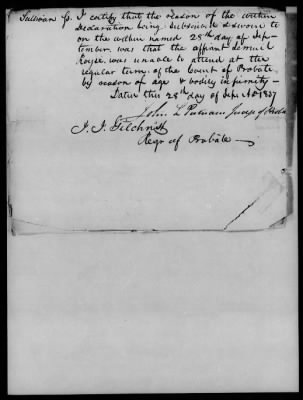 Sullivan Co. I certify that the reason of the within
Declaration being subscribed & sworn to
on the within named 28th day of Sep-
tember was that the affiant Lemuel
Royse was unable to attend at the
regular term of the Court of Probate
by reason of age & bodily infirmity –
Dated this 28th day of Sept. AD 1837
John L Putnam Judge of Probate
J. J. Gilchrist
Regr of Probate